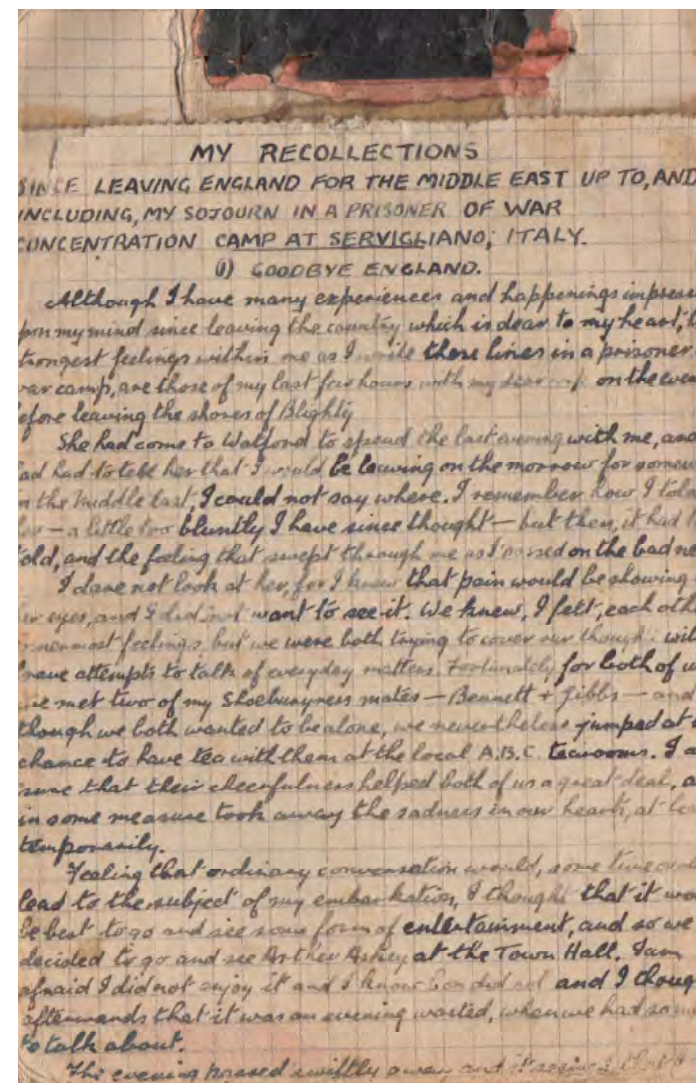 MY RECOLLECTIONS
SINCE LEAVING ENGLAND FOR THE MIDDLE EAST UP TO, AND
INCLUDING, MY SOJOURN IN A PRISONER OF WAR
CONCENTRATION CAMP AT SERVIGLIANO, ITALY.
(1) GOODBYE ENGLAND.
Although I have many experiences and happenings impress
pon my mind since leaving the country which is dear to my heart,
trongest feelings within me as I write these lines in a prisoner
war camp, are those of my last few hours with my dear on the eve
efore leaving the shores of Blighty
She had come to Watford to spend the last evening with me, and
ad had to tell her that I would be leaving on the morrow for somew
n the Middle East, I could not say where. I remember how I told
er — a little too bluntly I have since thought — but then, it had
old, and the feeling that swept through me as I passed on the bad ne
I dare not look at her, for I knew that pain would be showing
er eyes, and I did not want to see it. We knew, I felt, each oth
nnermost feelings, but we were both trying to cover our though wit
brave attempts to talk of everyday matters. Fortunately, for both of u
we met two of my Shoeburyness mates — Bennett + Gibbs — and
though we both wanted to be alone, we nevertheless jumped at
chance to have tea with them at the local A.B.C. tearooms. I a
sure that their cheerfulness helped both of us a great deal, a
in some measure took away the sadness in our hearts, at le
temporarily.
Feeling that ordinary conversation would, some time
lead to the subject of my embarkation, I thought that it wo
be best to go and see some form of entertainment, and so we
decided to go and see Arthur Askey at the Town Hall. I am
afraid I did not enjoy it and I know did not and I thoug
afterwards that it was an evening wasted, when we had so
to talk about.
The evening passed swiftly away, and it